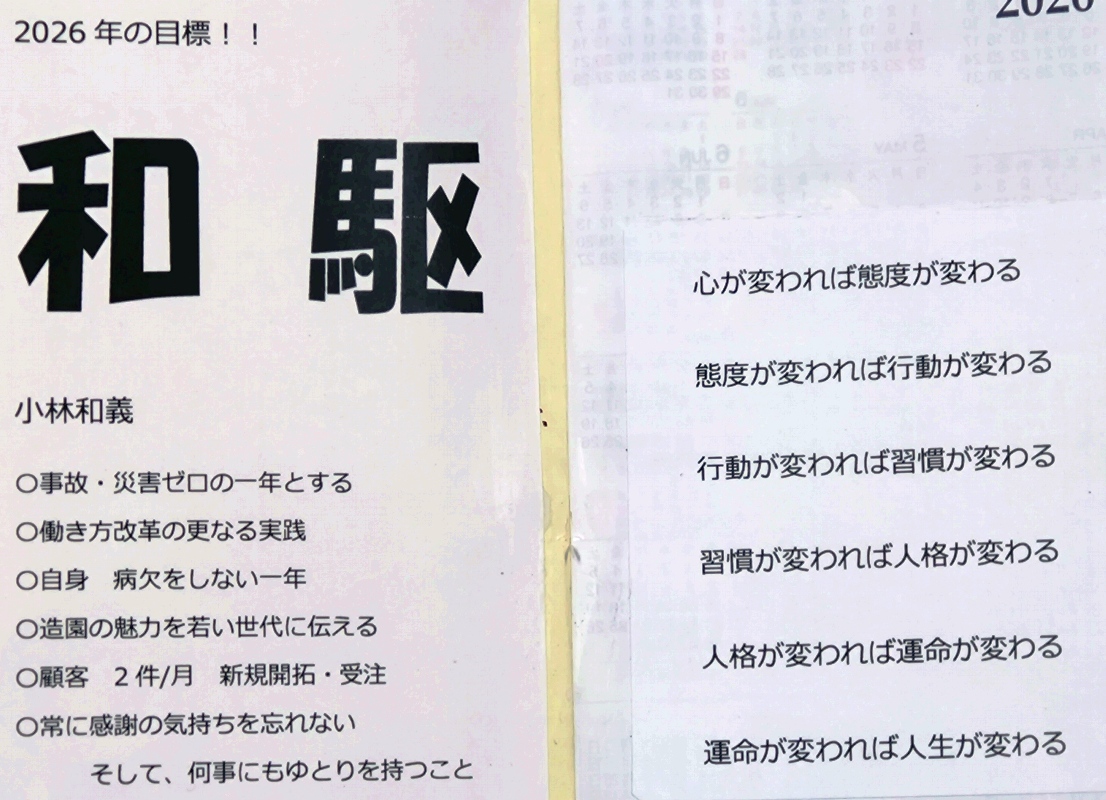 2026年の目標！！
和 駆
小林和義
○事故・災害ゼロの一年とする
○働き方改革の更なる実践
○自身　病欠をしない一年
○造園の魅力を若い世代に伝える
○顧客　2件/月　新規開拓・受注
○常に感謝の気持ちを忘れない
そして、何事にもゆとりを持つこと
2026
心が変われば態度が変わる
態度が変われば行動が変わる
行動が変われば習慣が変わる
習慣が変われば人格が変わる
人格が変われば運命が変わる
運命が変われば人生が変わる